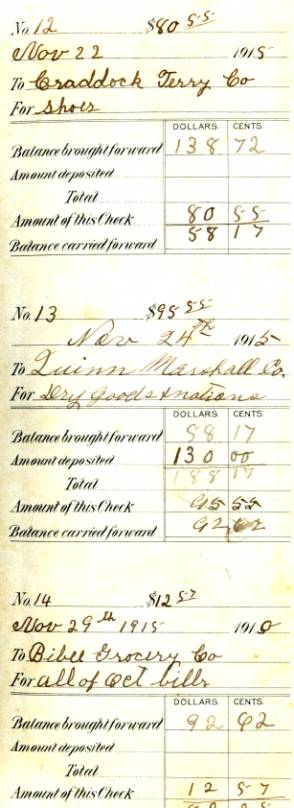 No. 12 $80 55
Nov 22 1915
To Craddock Terry Co
For Shoes
DOLLARS. CENTS.
Balance brought forward 138 72
Amount deposited
Total
Amount of this Check 80 55
Balance carried forward 58 17
No. 13 $95 55
Nov 24th 1915
To Quinn Marshall Co.
For Dry Goods & notions
DOLLARS CENTS
Balance brought forward 58 17
Amount deposited 130 00
Total 188 17
Amount of this Check 95 55
Balance carried forward 92 62
No. 14 $12 57
Nov 29th 1915 191
To Bibee Grocery Co
For all of Oct bills
DOLLARS CENTS
Balance brought forward 92 62
Amount deposited
Total
Amount of this Check 12 57